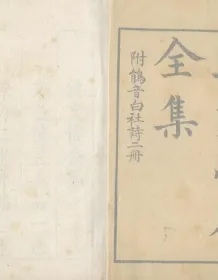 全集
附鶴音白社詩二冊